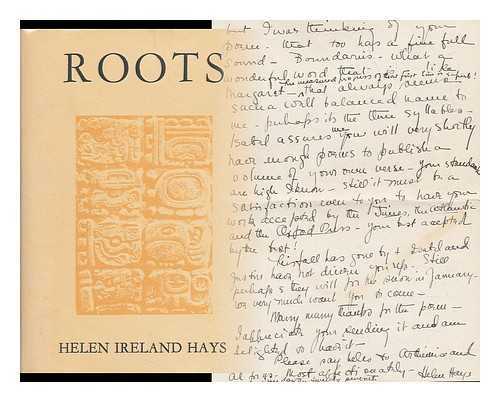 ROOTS
HELEN IRELAND HAYS
but I was thinking of your
poem. That too has a fine full
sound - Boundaries - what a
wonderful word that. like
the measured progress of that first line
Margaret - that always seems
such a well balanced name to
me - perhaps its the three syllables -
Isabel assures me you will very shortly
have enough poems to publish a
volume of your own verse - your standards
are high I know - still it must be a
satisfaction even to you to have your
work accepted by the Times, the Atlantic
and the Oxford Press - your best accepted
by the best!
fall has gone by &
have not driven you up. Still
perhaps they will for the snow in January -
for very much want you to come -
Many many thanks for the poem -
I appreciate your sending it and am
delighted to have it -
Please say hello to and
Most affectionately - Helen Hays